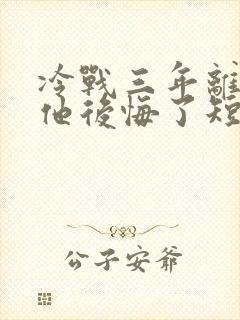 冷戰三年離
他後悔了短
公子安爺